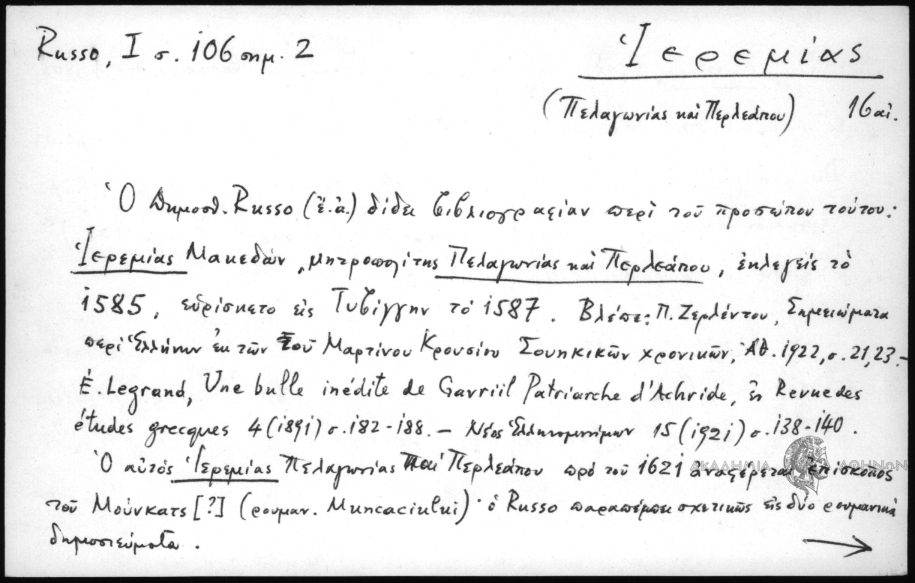 Russo, I σ. 106 σημ. 2
Ἱερεμίας
(Πελαγωνίας καὶ Περλεάπου) 16 αἰ.
Ὁ Δημοσθ. Russo (ἔ.ἀ.) δίδει βιβλιογραφίαν περὶ τοῦ προσώπου τούτου:
Ἱερεμίας Μακεδών, μητροπολίτης Πελαγωνίας καὶ Περλεάπου, ἐκλεγεὶς τὸ
1585, εὑρίσκετο εἰς Τυβίγγην τὸ 1587. Βλέπε: Π. Ζερλέντου, Σημειώματα
περὶ Ἑλλήνων ἐκ τῶν τοῦ Μαρτίνου Κρουσίου Σουηκικῶν χρονικῶν, Ἀθ. 1922, σ. 21, 23.–
É. Legrand, Une bulle inédite de Gavriil Patriarche d'Achride, ἐν Revue des
études grecques 4 (1891) σ. 182-188. – Νέος Ἑλληνομνήμων 15 (1921) σ. 138-140.
Ὁ αὐτὸς Ἱερεμίας Πελαγωνίας καὶ Περλεάπου πρὸ τοῦ 1621 ἀναφέρεται ἐπίσκοπος
τοῦ Μούνκατς [?] (ρουμαν. Muncaciului)· ὁ Russo παραπέμπει σχετικῶς εἰς δύο ρουμανικὰ
δημοσιεύματα.
ΑΚΑΔΗΜΙΑ ΑΘΗΝΩΝ